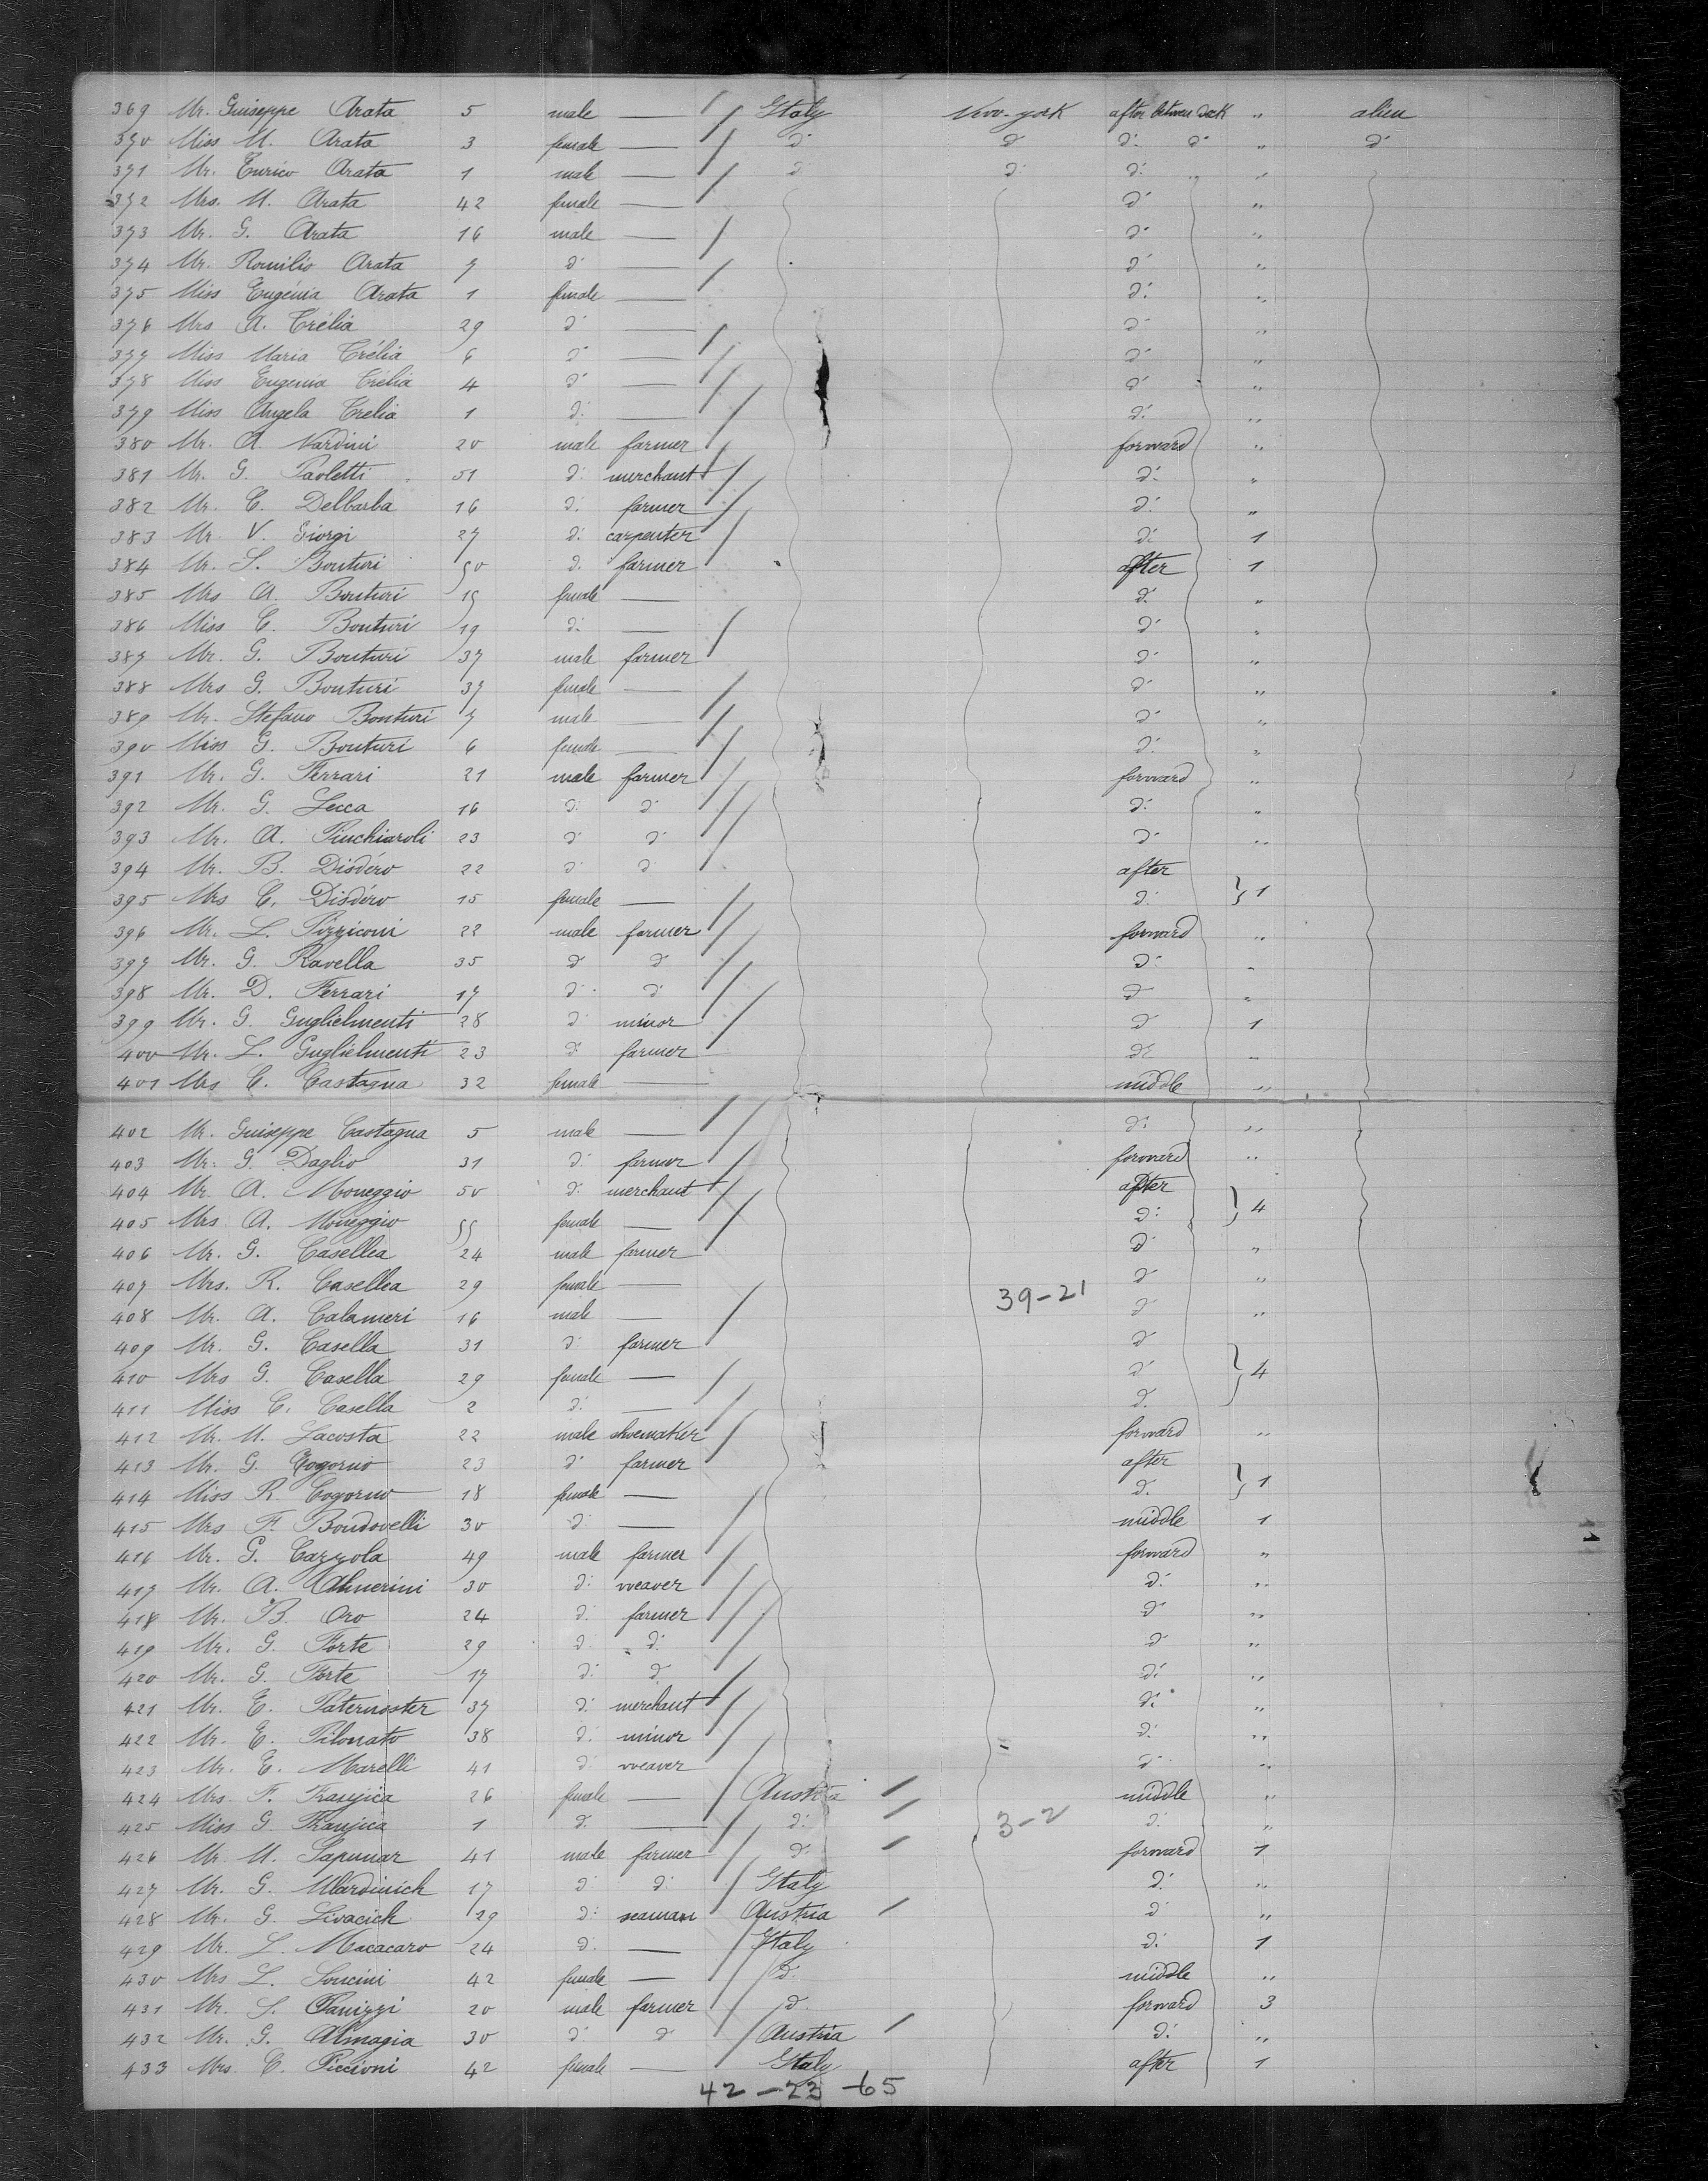 369 Mr. Guiseppe Arata 5 male — Italy New-york after between deck " alien
370 Miss M. Arata 3 female — d° d° d° d° " d°
371 Mr. Enrico Arata 1 male — d° d° d° " "
372 Mrs. M. Arata 42 female — d° "
373 Mr. G. Arata 16 male — d° "
374 Mr. Romilio Arata 7 d° — d° "
375 Miss Eugénia Arata 1 female — d° "
376 Mrs A. Crélia 29 d° — d° "
377 Miss Maria Crélia 6 d° — d° "
378 Miss Eugenia Crélia 4 d° — d° "
379 Miss Angela Crelia 1 d° — d° "
380 Mr. A. Nardini 20 male farmer forward "
381 Mr. G. Paoletti 51 d° merchant d° "
382 Mr. C. Delbarba 16 d° farmer d° "
383 Mr. V. Giorgi 27 d° carpenter d° 1
384 Mr. S. Bonturi 50 d° farmer after 1
385 Mrs A. Bonturi 15 female — d° "
386 Miss C. Bonturi 19 d° — d° "
387 Mr. G. Bonturi 37 male farmer d° "
388 Mrs G. Bonturi 37 female — d° "
389 Mr. Stefano Bonturi 7 male — d° "
390 Miss G. Bonturi 6 female — d° "
391 Mr. G. Ferrari 21 male farmer forward "
392 Mr. G. Lecca 16 d° d° d° "
393 Mr. A. Pinchiaroli 23 d° d° d° "
394 Mr. B. Disdéro 22 d° d° after
395 Mrs C. Disdéro 15 female — d° } 1
396 Mr. L. Pizziconi 22 male farmer forward "
397 Mr. G. Ravella 35 d° d° d° "
398 Mr. D. Ferrari 17 d° d° d° "
399 Mr. G. Guglielmenti 28 d° minor d° 1
400 Mr. L. Guglielmenti 23 d° farmer d° "
401 Mrs C. Castagna 32 female — middle "
402 Mr. Guiseppe Castagna 5 male — d° "
403 Mr. G. Daglio 31 d° farmer forward "
404 Mr. A. Moneggio 50 d° merchant after
405 Mrs A. Moneggio 55 female — d° } 4
406 Mr. G. Casellea 24 male farmer d° "
407 Mrs. R. Casellea 29 female — d° "
39-21
408 Mr. A. Calameri 16 male — d° "
409 Mr. G. Casella 31 d° farmer d°
410 Mrs G. Casella 29 female — d° } 4
411 Miss C. Casella 2 d° — d°
412 Mr. M. Lacosta 22 male shoemaker forward "
413 Mr. G. Cogorno 23 d° farmer after
414 Miss R. Cogorno 18 female — d° } 1
415 Mrs F. Bondovelli 30 d° — middle 1
416 Mr. G. Cazzola 49 male farmer forward "
417 Mr. A. Almerini 30 d° weaver d° "
418 Mr. B. Oro 24 d° farmer d° "
419 Mr. G. Forte 29 d° d° d° "
420 Mr. G. Forte 17 d° d° d° "
421 Mr. E. Paternoster 37 d° merchant d° "
422 Mr. E. Pilonato 38 d° minor d° "
423 Mr. E. Marelli 41 d° weaver d° "
424 Mrs. F. Franjica 26 female — Austria middle "
425 Miss G. Franjica 1 d° — d° 3-2 d° "
426 Mr. M. Sapunar 41 male farmer d° forward 1
427 Mr. G. Mlardinich 17 d° d° Italy d° "
428 Mr. G. Livacich 29 d° seaman Austria d° "
429 Mr. L. Macacaro 24 d° — Italy d° 1
430 Mrs L. Soncini 42 female — d° middle "
431 Mr. S. Panizzi 20 male farmer d° forward 3
432 Mr. G. Almagia 30 d° d° Austria d° "
433 Mrs. C. Piccioni 42 female — Italy after 1
42-23-65